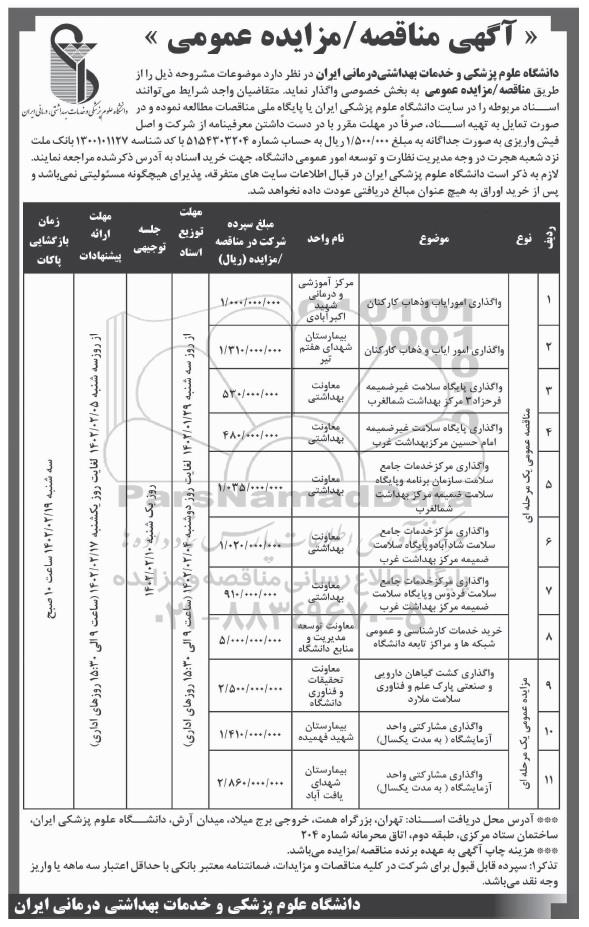 « آگهی مناقصه/مزایده عمومی »
دانشگاه علوم پزشکی و خدمات بهداشتی، درمانی ایران
دانشگاه علوم پزشکی و خدمات بهداشتی‌درمانی ایران در نظر دارد موضوعات مشروحه ذیل را از
طریق مناقصه/مزایده عمومی به بخش خصوصی واگذار نماید. متقاضیان واجد شرایط می‌توانند
اسناد مربوطه را در سایت دانشگاه علوم پزشکی ایران یا پایگاه ملی مناقصات مطالعه نموده و در
صورت تمایل به تهیه اسناد، صرفاً در مهلت مقرر با در دست داشتن معرفینامه از شرکت و اصل
فیش واریزی به صورت جداگانه به مبلغ ۱/۵۰۰/۰۰۰ ریال به حساب شماره ۵۱۵۴۳۰۳۲۰۴ با کد شناسه ۱۳۰۰۱۰۱۱۲۷ بانک ملت
نزد شعبه هجرت در وجه مدیریت نظارت و توسعه امور عمومی دانشگاه، جهت خرید اسناد به آدرس ذکرشده مراجعه نمایند.
لازم به ذکر است دانشگاه علوم پزشکی ایران در قبال اطلاعات سایت های متفرقه، پذیرای هیچگونه مسئولیتی نمی‌باشد و
پس از خرید اوراق به هیچ عنوان مبالغ دریافتی عودت داده نخواهد شد.
ردیف
نوع
موضوع
نام واحد
مبلغ سپرده
شرکت در مناقصه
/مزایده (ریال)
مهلت
توزیع
اسناد
جلسه
توجیهی
مهلت
ارائه
پیشنهادات
زمان
بازگشایی
پاکات
مناقصه عمومی یک مرحله ای
۱
واگذاری امورایاب وذهاب کارکنان
مرکز آموزشی
و درمانی
شهید
اکبرآبادی
۱/۰۰۰/۰۰۰/۰۰۰
۲
واگذاری امور ایاب و ذهاب کارکنان
بیمارستان
شهدای هفتم
تیر
۱/۳۱۰/۰۰۰/۰۰۰
۳
واگذاری پایگاه سلامت غیرضمیمه
فرحزاد۳ مرکز بهداشت شمالغرب
معاونت
بهداشتی
۵۳۰/۰۰۰/۰۰۰
۴
واگذاری پایگاه سلامت غیرضمیمه
امام حسین مرکزبهداشت غرب
معاونت
بهداشتی
۴۸۰/۰۰۰/۰۰۰
۵
واگذاری مرکزخدمات جامع
سلامت سازمان برنامه وپایگاه
سلامت ضمیمه مرکز بهداشت
شمالغرب
معاونت
بهداشتی
۱/۰۳۵/۰۰۰/۰۰۰
۶
واگذاری مرکزخدمات جامع
سلامت شادآبادوپایگاه سلامت
ضمیمه مرکز بهداشت غرب
معاونت
بهداشتی
۱/۰۲۰/۰۰۰/۰۰۰
۷
واگذاری مرکزخدمات جامع
سلامت فردوس وپایگاه سلامت
ضمیمه مرکز بهداشت غرب
معاونت
بهداشتی
۹۱۰/۰۰۰/۰۰۰
۸
خرید خدمات کارشناسی و عمومی
شبکه ها و مراکز تابعه دانشگاه
معاونت توسعه
مدیریت و
منابع دانشگاه
۵/۰۰۰/۰۰۰/۰۰۰
مزایده عمومی یک مرحله ای
۹
واگذاری کشت گیاهان دارویی
و صنعتی پارک علم و فناوری
سلامت ملارد
معاونت
تحقیقات
و فناوری
دانشگاه
۲/۵۰۰/۰۰۰/۰۰۰
۱۰
واگذاری مشارکتی واحد
آزمایشگاه ( به مدت یکسال)
بیمارستان
شهید فهمیده
۱/۴۱۰/۰۰۰/۰۰۰
۱۱
واگذاری مشارکتی واحد
آزمایشگاه ( به مدت یکسال)
بیمارستان
شهدای
یافت آباد
۲/۸۶۰/۰۰۰/۰۰۰
از روز سه شنبه ۱۴۰۲/۰۱/۲۹ لغایت روز دوشنبه ۱۴۰۲/۰۲/۰۴ (ساعت ۹ الی ۱۵:۳۰ روزهای اداری)
روز یک شنبه ۱۴۰۲/۰۲/۱۰
از روز سه شنبه ۱۴۰۲/۰۲/۰۵ لغایت روز یکشنبه ۱۴۰۲/۰۲/۱۷ (ساعت ۹ الی ۱۵:۳۰ روزهای اداری)
سه شنبه ۱۴۰۲/۰۲/۱۹ ساعت ۱۰ صبح
ParsNamadData
پایگاه اطلاع رسانی مناقصه و مزایده
۰۲۱-۸۸۳۴۹۶۷۰-۵
*** آدرس محل دریافت اسناد: تهران، بزرگراه همت، خروجی برج میلاد، میدان آرش، دانشگاه علوم پزشکی ایران،
ساختمان ستاد مرکزی، طبقه دوم، اتاق محرمانه شماره ۲۰۴
*** هزینه چاپ آگهی به عهده برنده مناقصه/مزایده می‌باشد.
تذکر۱: سپرده قابل قبول برای شرکت در کلیه مناقصات و مزایدات، ضمانتنامه معتبر بانکی با حداقل اعتبار سه ماهه یا واریز
وجه نقد می‌باشد.
دانشگاه علوم پزشکی و خدمات بهداشتی درمانی ایران